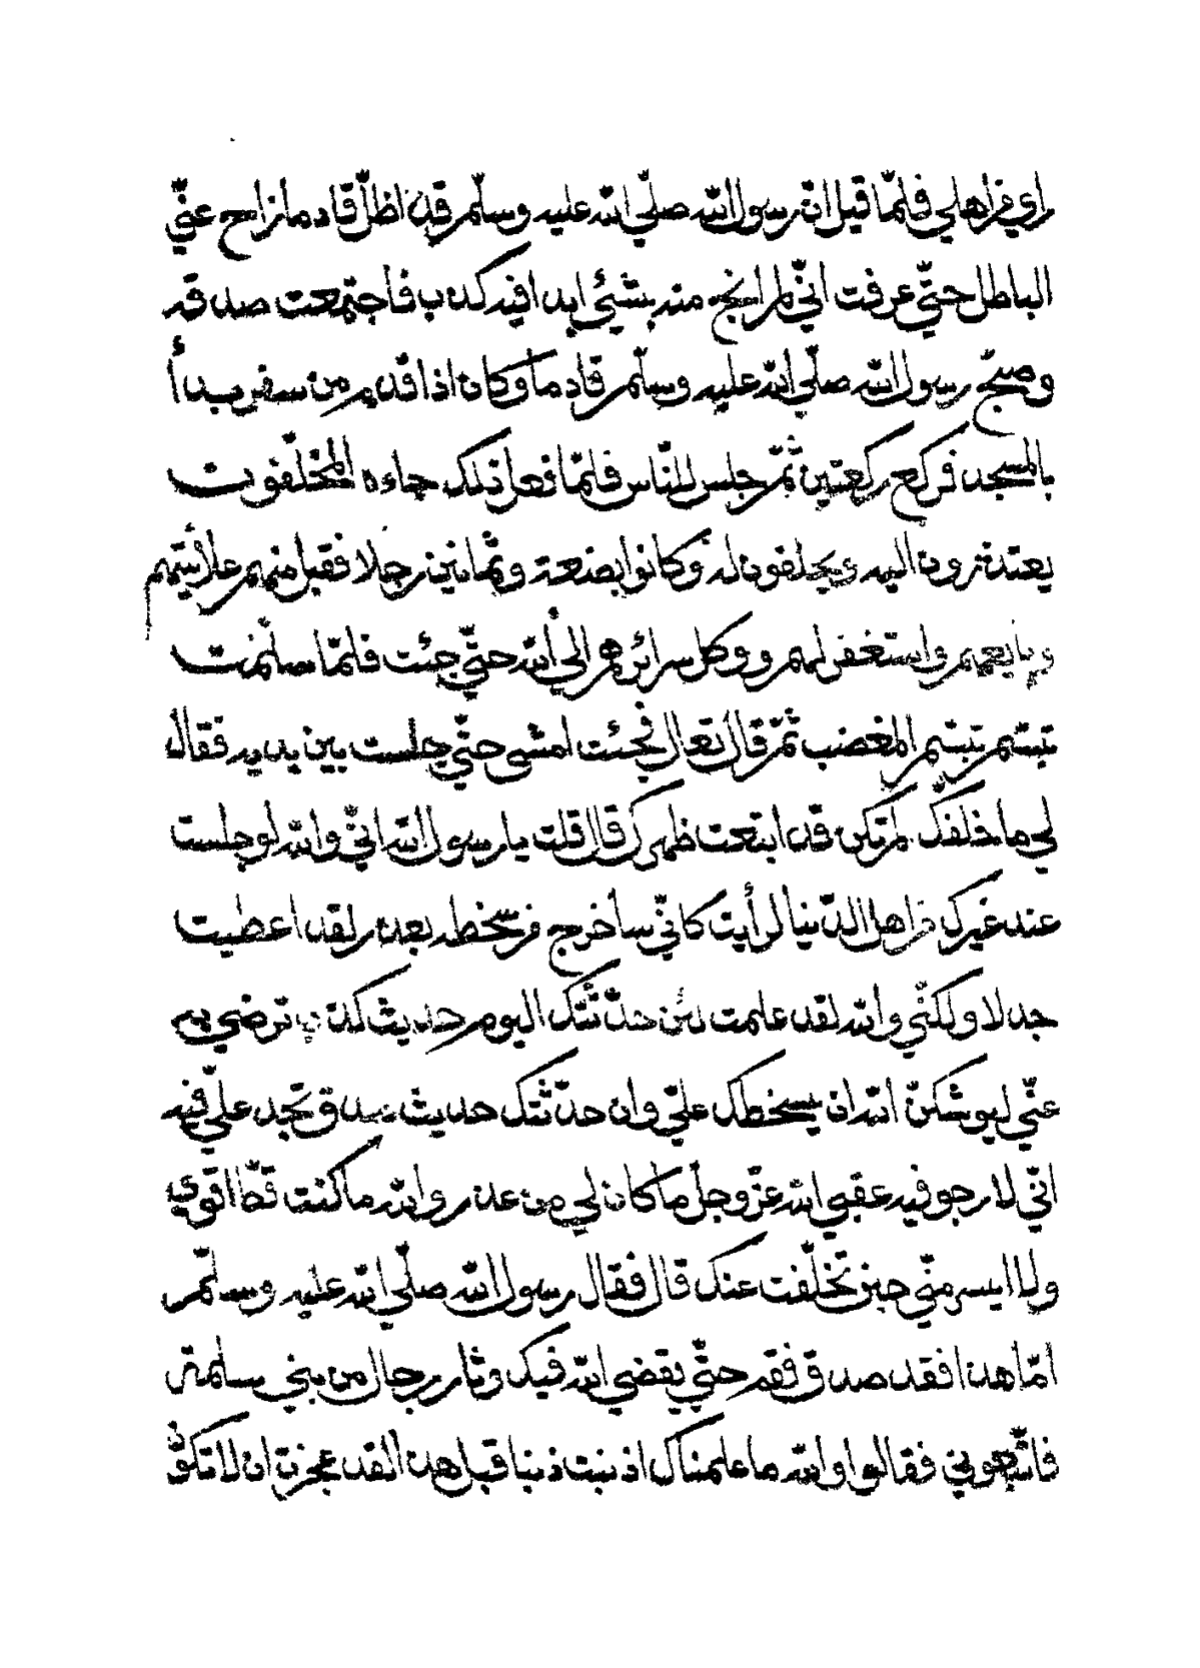 راي من اهلي فلمّا قيل انّ رسول الله صلّي الله عليه وسلّم قد اظلّ قادما زاح عنّي
الباطل حتّي عرفت انّي لم انج منه بشئي ابدا فيه كذب فاجتمعت صدقه
وصبّح رسول الله صلّي الله عليه وسلّم قادما وكان اذا قدم من سفر بدأ
بالمسجد فركع ركعتين ثمّ جلس للنّاس فلمّا فعل ذلك جاءه المخلّفون
يعتذرون اليه ويحلفون له وكانوا بضعة وثمانين رجلا فقبل منهم علانيتهم
وبايعهم واستغفر لهم ووكل سرائرهم الي الله حتّي جئت فلمّا سلّمت
تبسّم تبسّم المغضب ثمّ قال تعال فجئت امشي حتّي جلست بين يديه فقال
لي ما خلفك الم تكن قد ابتعت ظهرك قال قلت يا رسول الله انّي والله لو جلست
عند غيرك من اهل الدّنيا لرأيت كانّي سأخرج من سخطه بعذر لقد اعطيت
جدلا ولكنّي والله لقد علمت لئن حدّثتك اليوم حديث كذب ترضي به
عنّي ليوشكنّ الله ان يسخطك عليّ وان حدّثتك حديث صدق تجد عليّ فيه
انّي لارجو فيه عقبي الله عزّ وجلّ ما كان لي من عذر والله ما كنت قطّ اقوي
ولا ايسر منّي حين تخلّفت عنك قال فقال رسول الله صلّي الله عليه وسلّم
امّا هذا فقد صدق فقم حتّي يقضي الله فيك وثار رجال من بني سلمة
فاتّبعوني فقالوا والله ما علمناك اذنبت ذنبا قبل هذا لقد عجزت ان لا تكون